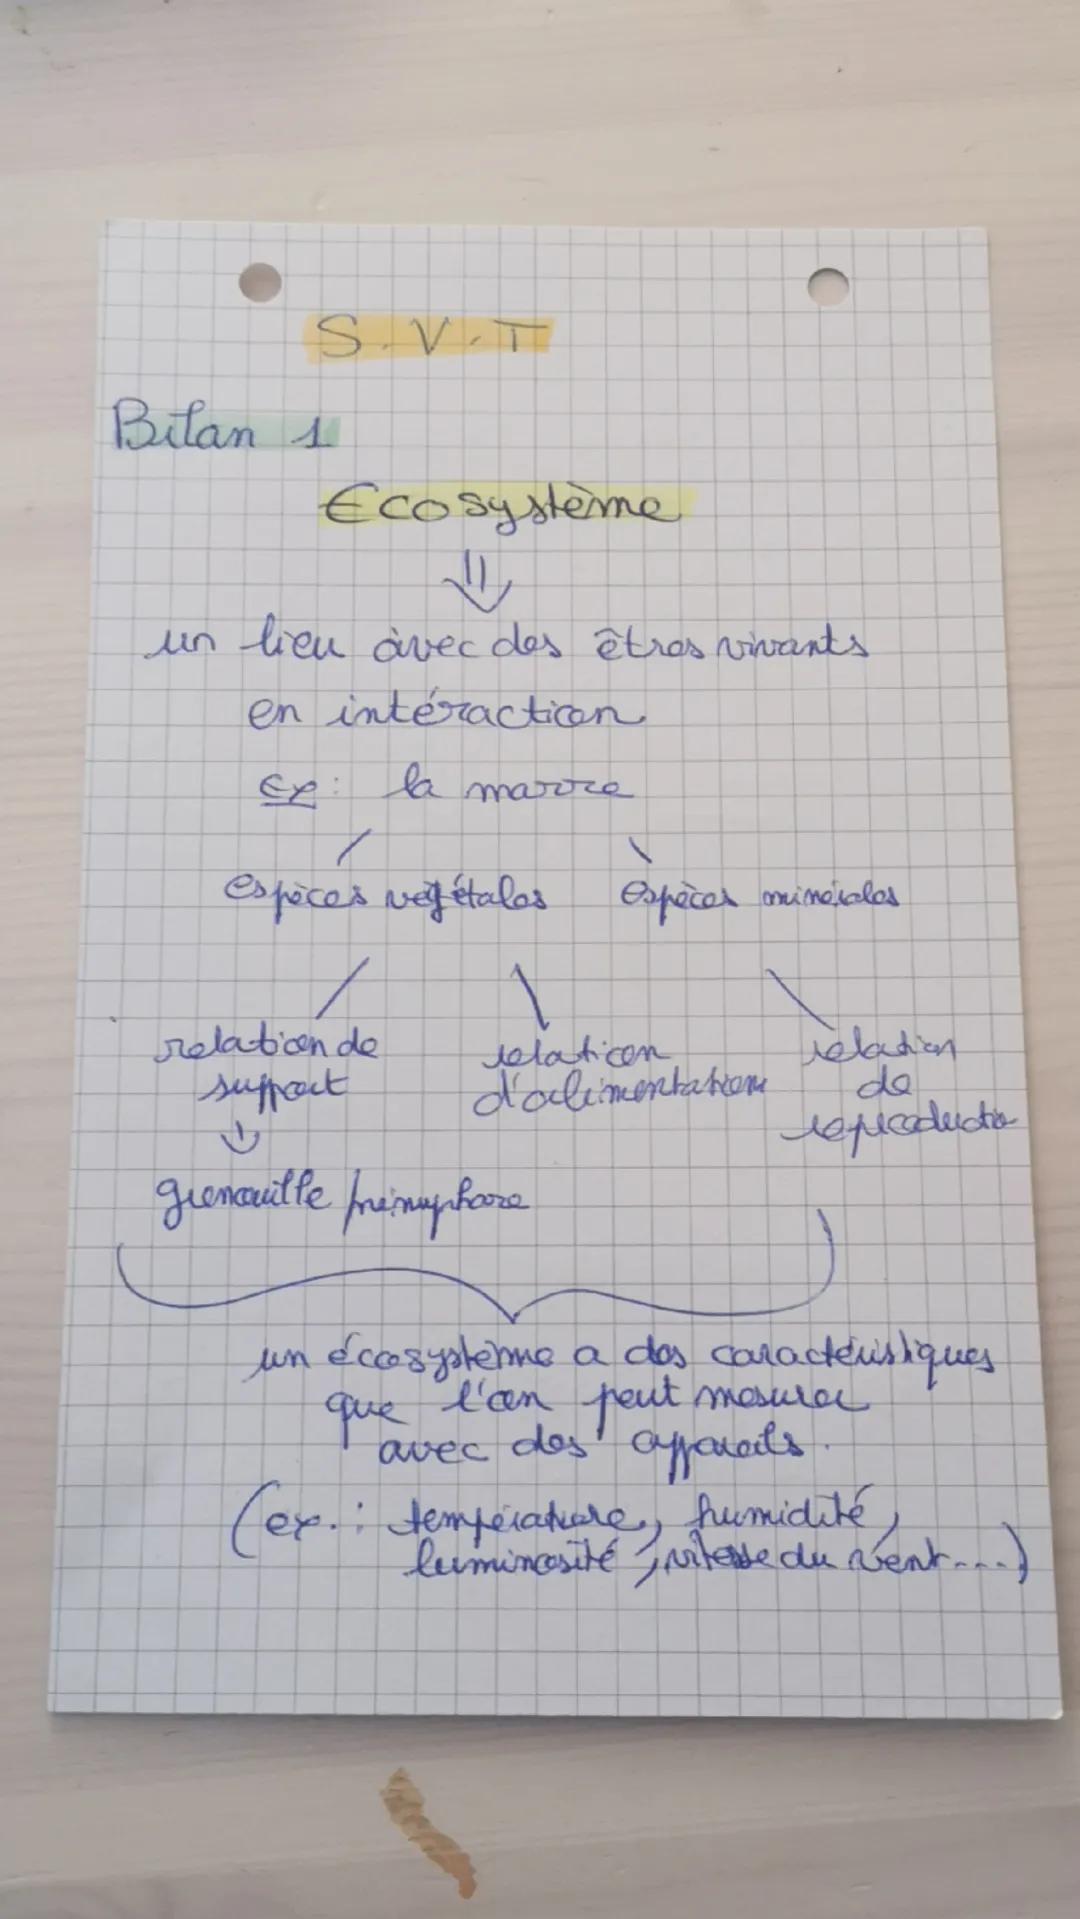 S.V.T
Bilan 1
Ecosystème
un lieu avec des êtres vivants
en intéraction
Ex: la marre
espèces végétales espèces minérales
relation de relation relation
support d'alimentation de
reproductio
grenouille / nénuphare
un écosystème a des caractéristiques
que l'on peut mesurer
avec des appareils.
(ex.: température, humidité,
luminosité, vitesse du vent....)